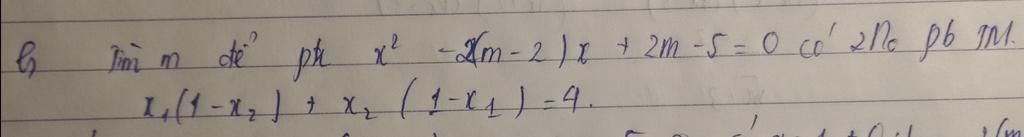 b, Tìm m để pt x² - 2(m-2)x + 2m-5=0 có 2No pb TM.
x₁(1-x₂) + x₂(1-x₁)=4.